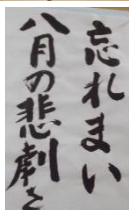 忘れまい
八月の悲劇を